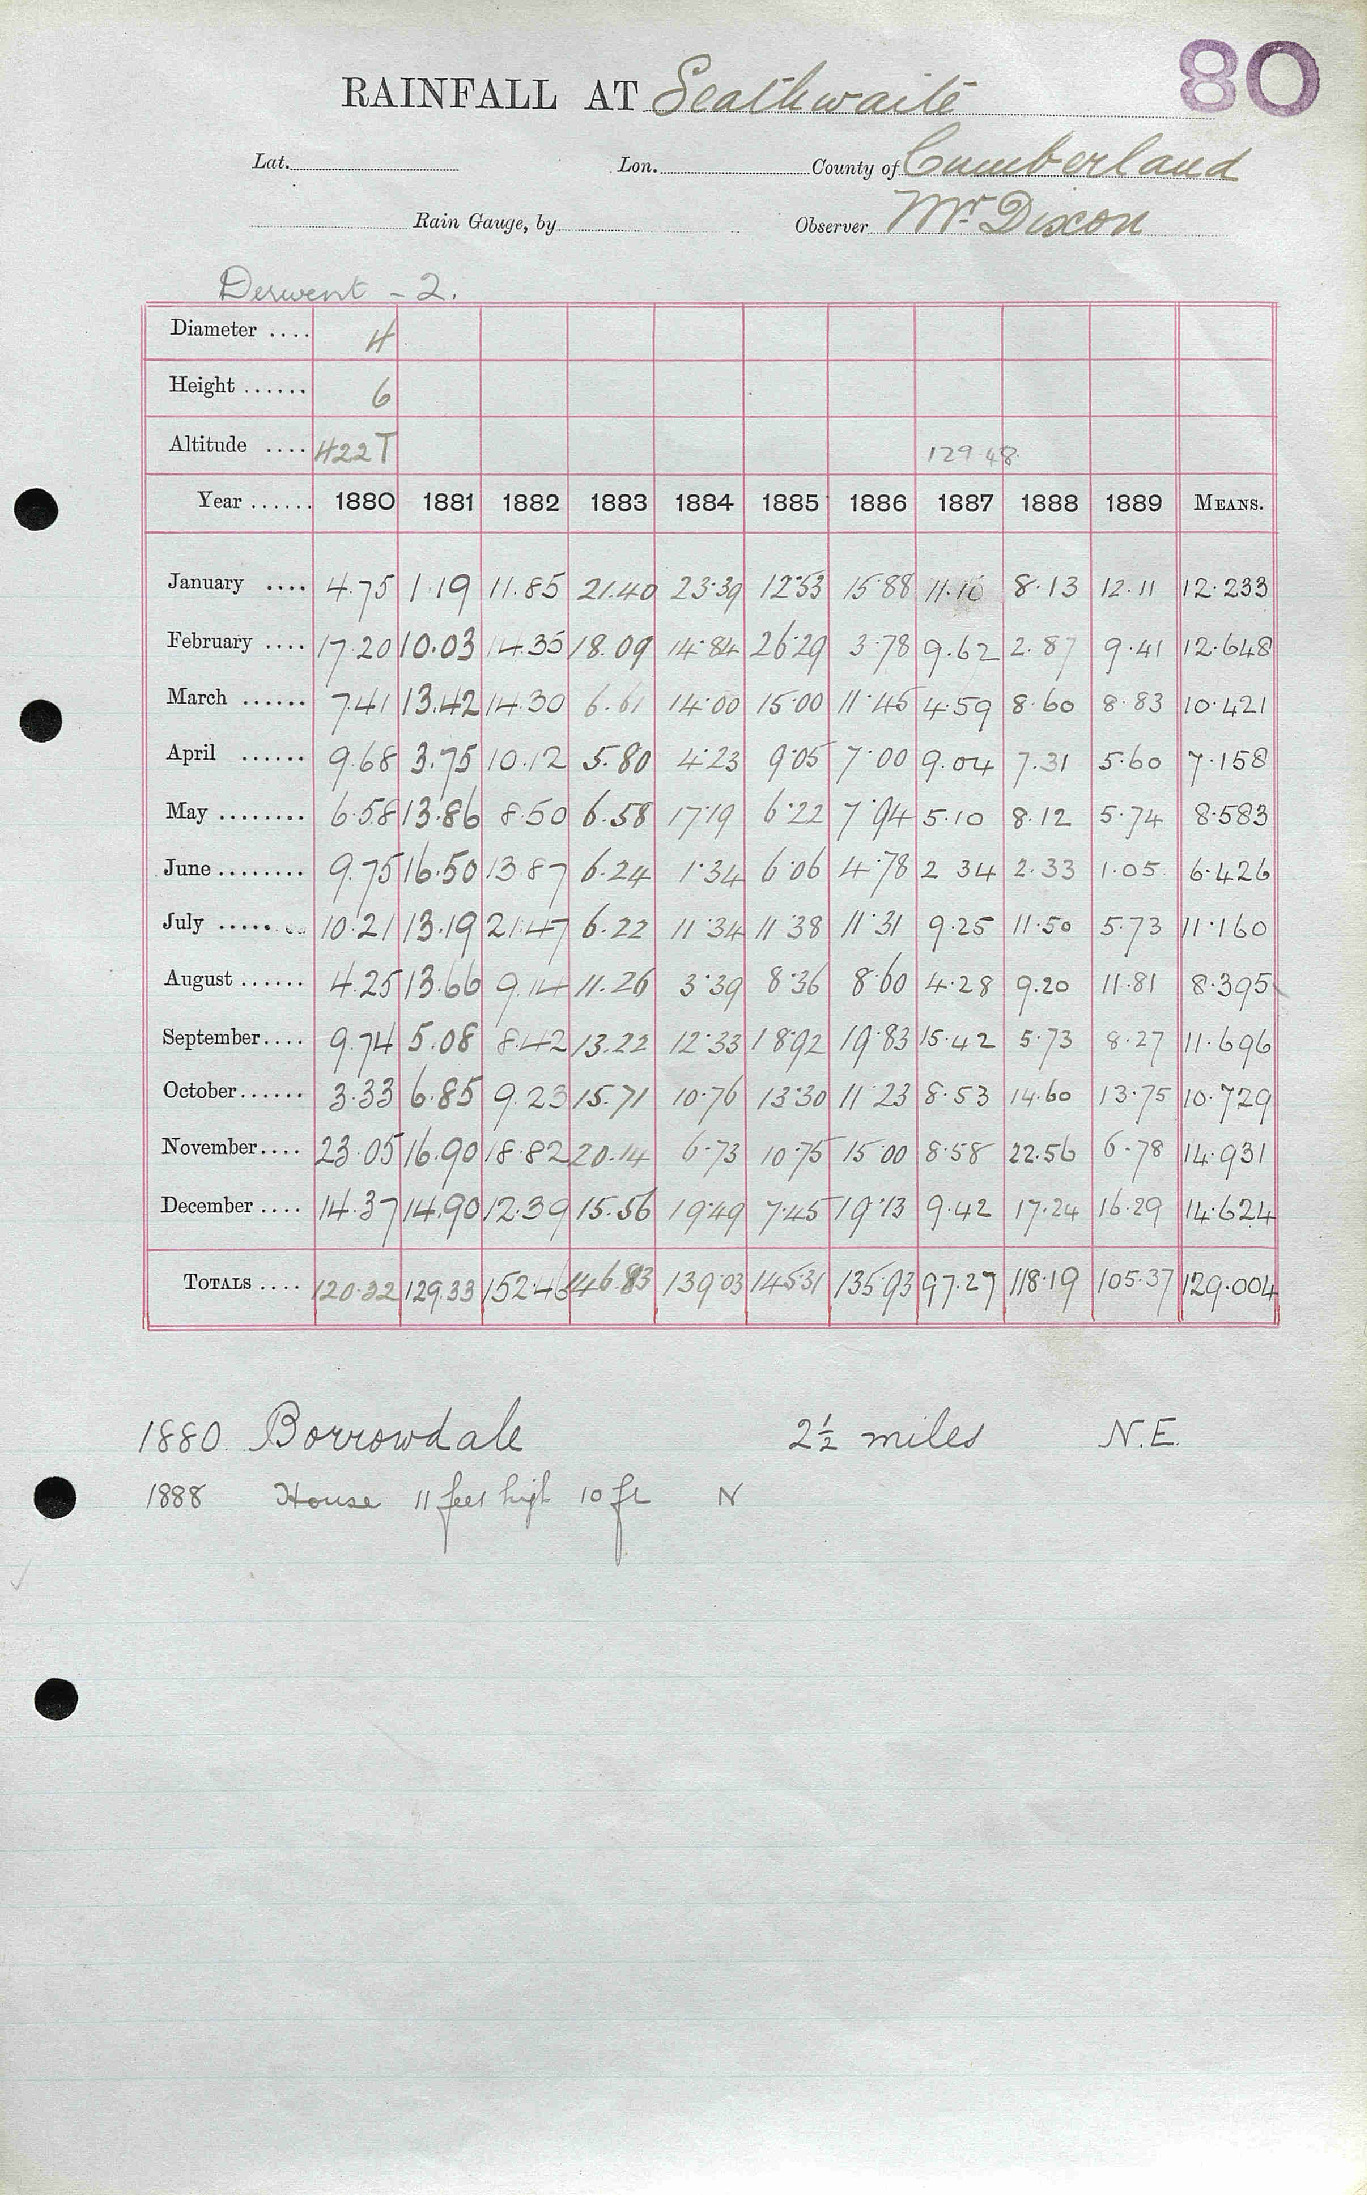 80
RAINFALL AT Seathwaite
Lat. Lon. County of Cumberland
Rain Gauge, by Observer Mr Dixon
Derwent - 2.
Diameter .... 4
Height ...... 6
Altitude .... 422 T 129 48
Year ...... 1880 1881 1882 1883 1884 1885 1886 1887 1888 1889 MEANS.
January .... 4.75 1.19 11.85 21.40 23.39 12.53 15.88 11.10 8.13 12.11 12.233
February .... 17.20 10.03 14.35 18.09 14.84 26.29 3.78 9.62 2.87 9.41 12.648
March ...... 7.41 13.42 14.30 6.61 14.00 15.00 11.45 4.59 8.60 8.83 10.421
April ...... 9.68 3.75 10.12 5.80 4.23 9.05 7.00 9.04 7.31 5.60 7.158
May ........ 6.58 13.86 8.50 6.58 17.19 6.22 7.94 5.10 8.12 5.74 8.583
June ........ 9.75 16.50 13.87 6.24 1.34 6.06 4.78 2 34 2.33 1.05 6.426
July ........ 10.21 13.19 21.47 6.22 11.34 11.38 11.31 9.25 11.50 5.73 11.160
August ...... 4.25 13.66 9.14 11.26 3.39 8.36 8.60 4.28 9.20 11.81 8.395
September.... 9.74 5.08 8.42 13.22 12.33 18.92 19.83 15.42 5.73 8.27 11.696
October...... 3.33 6.85 9.23 15.71 10.76 13.30 11.23 8.53 14.60 13.75 10.729
November.... 23.05 16.90 18.82 20.14 6.73 10.75 15.00 8.58 22.56 6.78 14.931
December .... 14.37 14.90 12.39 15.56 19.49 7.45 19.13 9.42 17.24 16.29 14.624
TOTALS .... 120.32 129.33 152.46 146.83 139.03 145.31 135.93 97.27 118.19 105.37 129.004
1880 Borrowdale 2½ miles N.E.
1888 House 11 feet high 10 ft N